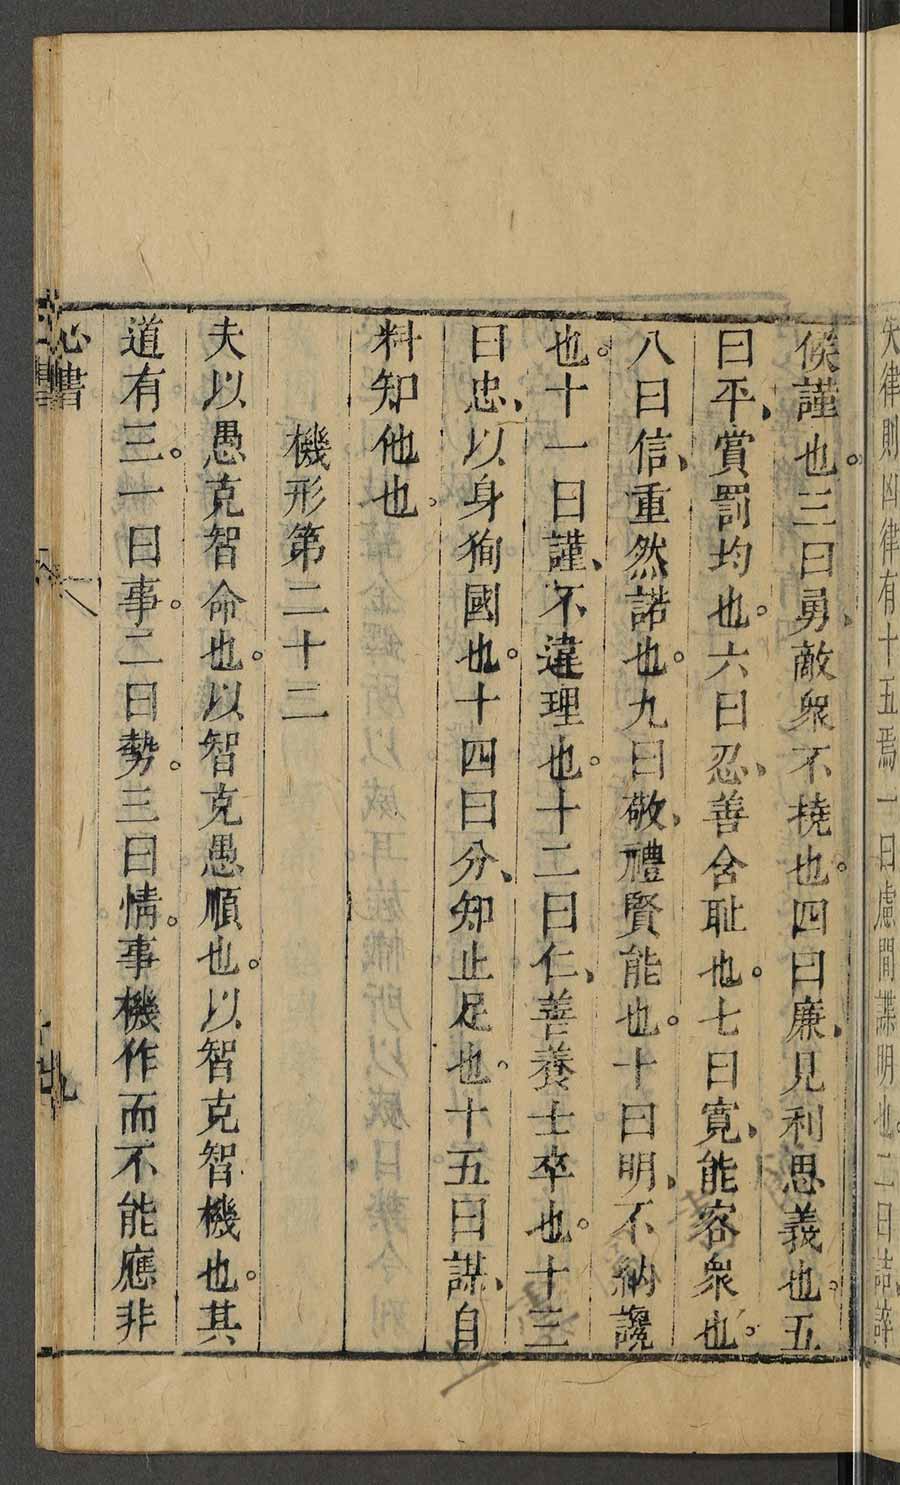 失律則凶律有十五焉一曰慮間諜明也二曰詰誶
候謹也。三曰勇、敵衆不撓也。四曰廉、見利思義也。五
曰平、賞罰均也。六曰忍、善含耻也。七曰寛、能容衆也。
八曰信、重然諾也。九曰敬、禮賢能也。十曰明、不納讒
也。十一曰謹、不違理也。十二曰仁、善養士卒也。十三
曰忠、以身狥國也。十四曰分、知止足也。十五曰謀、自
料知他也。
機形第二十二
夫以愚克智命也。以智克愚順也。以智克智機也。其
道有三。一曰事。二曰勢。三曰情。事機作而不能應非
心書